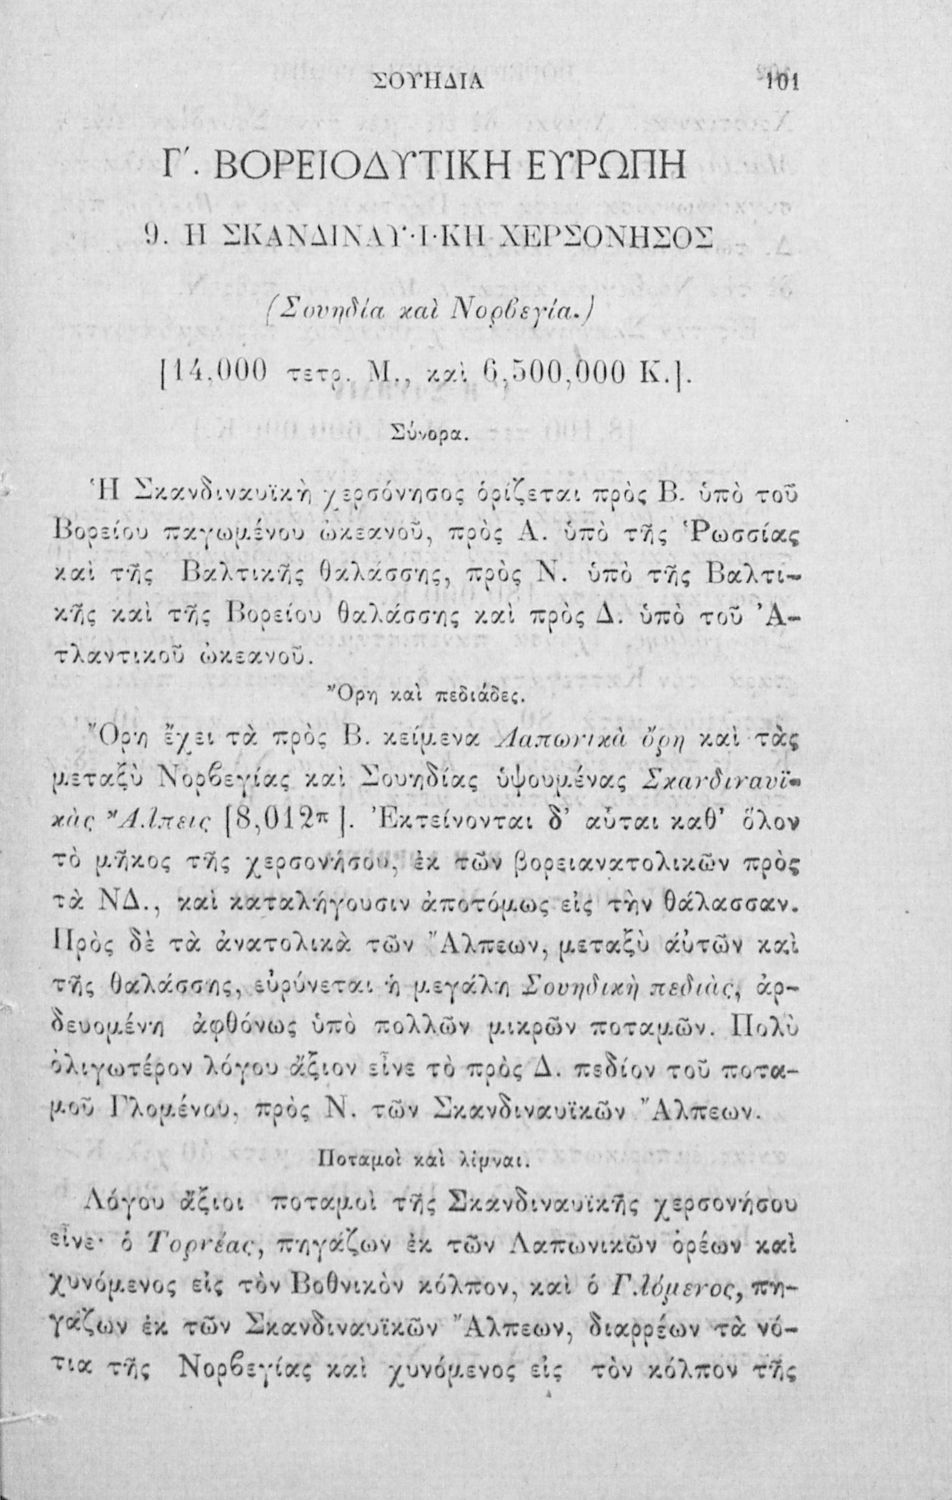 ΣΟΥΗΔΙΑ 101
Γ΄. ΒΟΡΕΙΟΔΥΤΙΚΗ ΕΥΡΩΠΗ
9. Η ΣΚΑΝΔΙΝΑΥ·Ι·ΚΗ ΧΕΡΣΟΝΗΣΟΣ
(Σουηδία καὶ Νορβεγία.)
[14,000 τετρ. Μ., καὶ 6,500,000 Κ.].
Σύνορα.
Ἡ Σκανδιναυϊκὴ χερσόνησος ὁρίζεται πρὸς Β. ὑπὸ τοῦ
Βορείου παγωμένου ὠκεανοῦ, πρὸς Α. ὑπὸ τῆς Ῥωσσίας
καὶ τῆς Βαλτικῆς θαλάσσης, πρὸς Ν. ὑπὸ τῆς Βαλτι-
κῆς καὶ τῆς Βορείου θαλάσσης καὶ πρὸς Δ. ὑπὸ τοῦ Ἀ-
τλαντικοῦ ὠκεανοῦ.
Ὄρη καὶ πεδιάδες.
Ὄρη ἔχει τὰ πρὸς Β. κείμενα Λαπωνικὰ ὄρη καὶ τὰς
μεταξὺ Νορβεγίας καὶ Σουηδίας ὑψουμένας Σκανδιναυϊ-
κὰς Ἄλπεις [8,012π]. Ἐκτείνονται δ' αὗται καθ' ὅλον
τὸ μῆκος τῆς χερσονήσου, ἐκ τῶν βορειανατολικῶν πρὸς
τὰ ΝΔ., καὶ καταλήγουσιν ἀποτόμως εἰς τὴν θάλασσαν.
Πρὸς δὲ τὰ ἀνατολικὰ τῶν Ἄλπεων, μεταξὺ αὐτῶν καὶ
τῆς θαλάσσης, εὑρύνεται ἡ μεγάλη Σουηδικὴ πεδιὰς, ἀρ-
δευομένη ἀφθόνως ὑπὸ πολλῶν μικρῶν ποταμῶν. Πολὺ
ὀλιγωτέρον λόγου ἄξιον εἶνε τὸ πρὸς Δ. πεδίον τοῦ ποτα-
μοῦ Γλομένου, πρὸς Ν. τῶν Σκανδιναυϊκῶν Ἄλπεων.
Ποταμοὶ καὶ λίμναι.
Λόγου ἄξιοι ποταμοὶ τῆς Σκανδιναυϊκῆς χερσονήσου
εἶνε· ὁ Τορνέας, πηγάζων ἐκ τῶν Λαπωνικῶν ὀρέων καὶ
χυνόμενος εἰς τὸν Βοθνικὸν κόλπον, καὶ ὁ Γλόμενος, πη-
γάζων ἐκ τῶν Σκανδιναυϊκῶν Ἄλπεων, διαρρέων τὰ νό-
τια τῆς Νορβεγίας καὶ χυνόμενος εἰς τὸν κόλπον τῆς